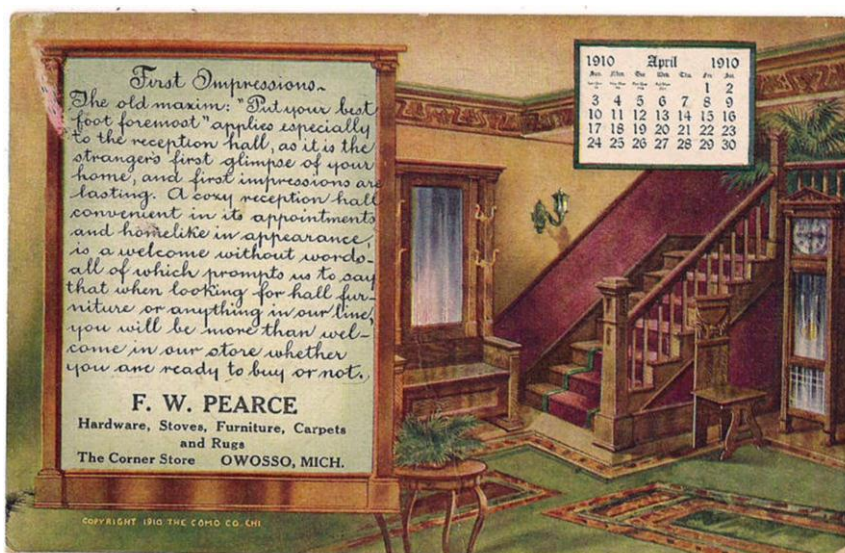 First Impressions~
The old maxim: "Put your best
foot foremost" applies especially
to the reception hall, as it is the
stranger's first glimpse of your
home, and first impressions are
lasting. A cozy reception hall
convenient in its appointments
and homelike in appearance,
is a welcome without words-
all of which prompts us to say
that when looking for hall fur-
niture or anything in our line,
you will be more than wel-
come in our store whether
you are ready to buy or not.
F. W. PEARCE
Hardware, Stoves, Furniture, Carpets
and Rugs
The Corner Store OWOSSO, MICH.
COPYRIGHT 1910 THE COMO CO. CHI
1910 April 1910
Sun. Mon. Tue. Wed. Thu. Fri. Sat.
1 2
3 4 5 6 7 8 9
10 11 12 13 14 15 16
17 18 19 20 21 22 23
24 25 26 27 28 29 30